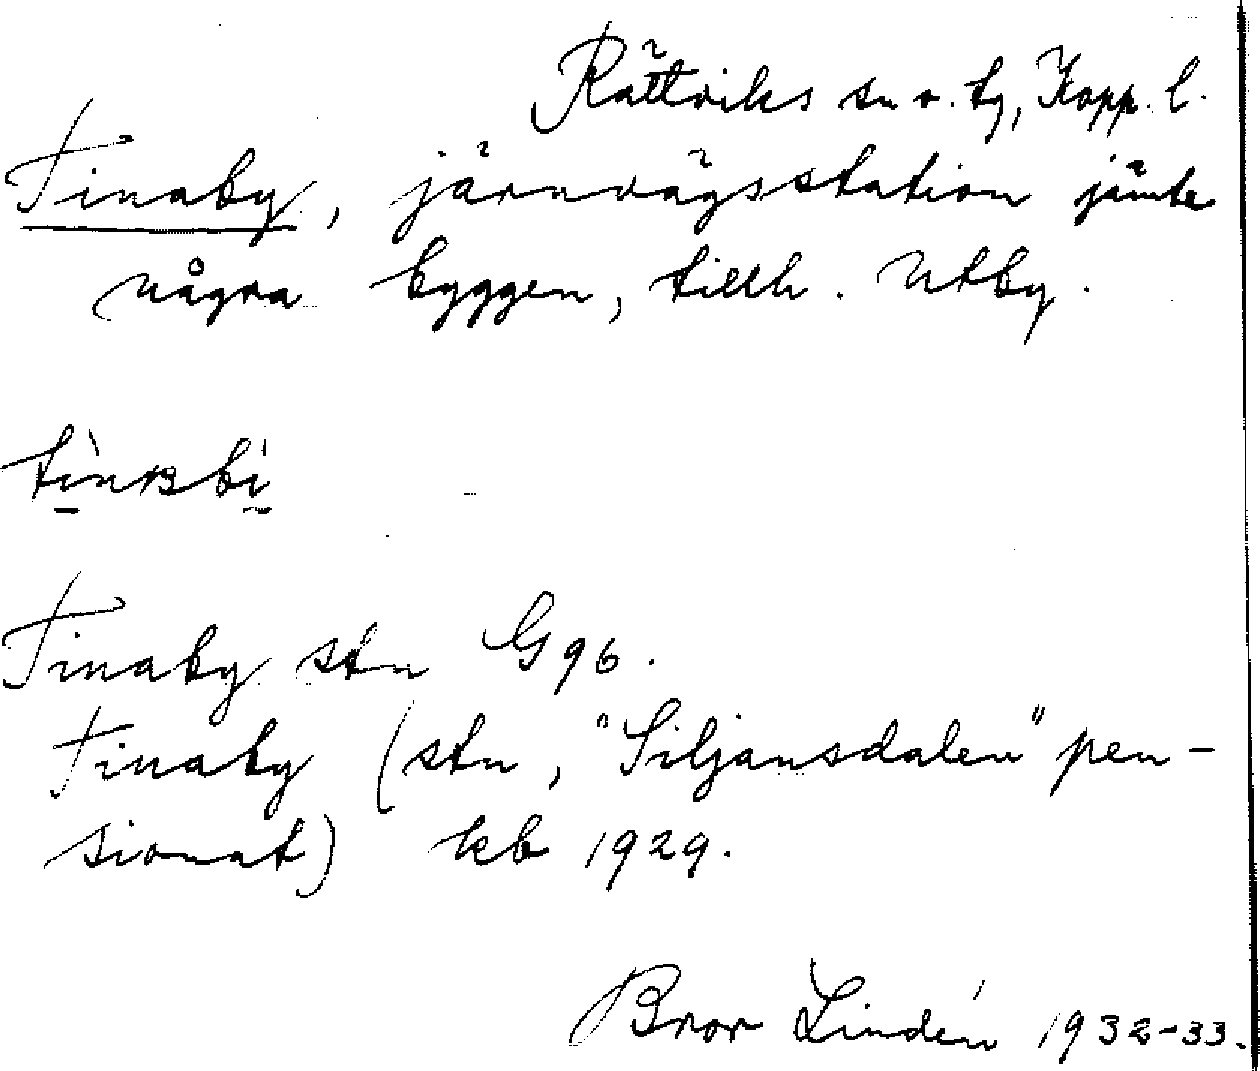 Rättviks sn o. tg, Kopp. l.
Tinaby, järnvägsstation jämte
några byggen, tillh. Utby.
Tinaby stn G96.
Tinaby (stn, "Siljansdalen" pen-
sionat) kb 1929.
Bror Lindén 1932-33.